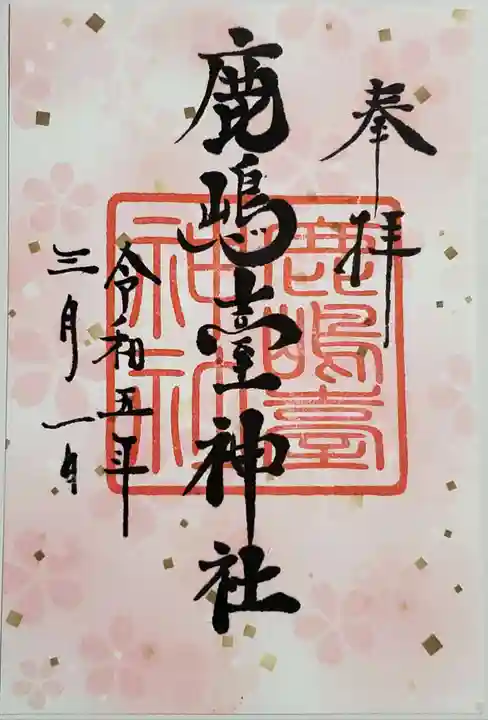 奉拝
鹿嶋臺神社
鹿嶋臺
神社
令和五年
三月一日